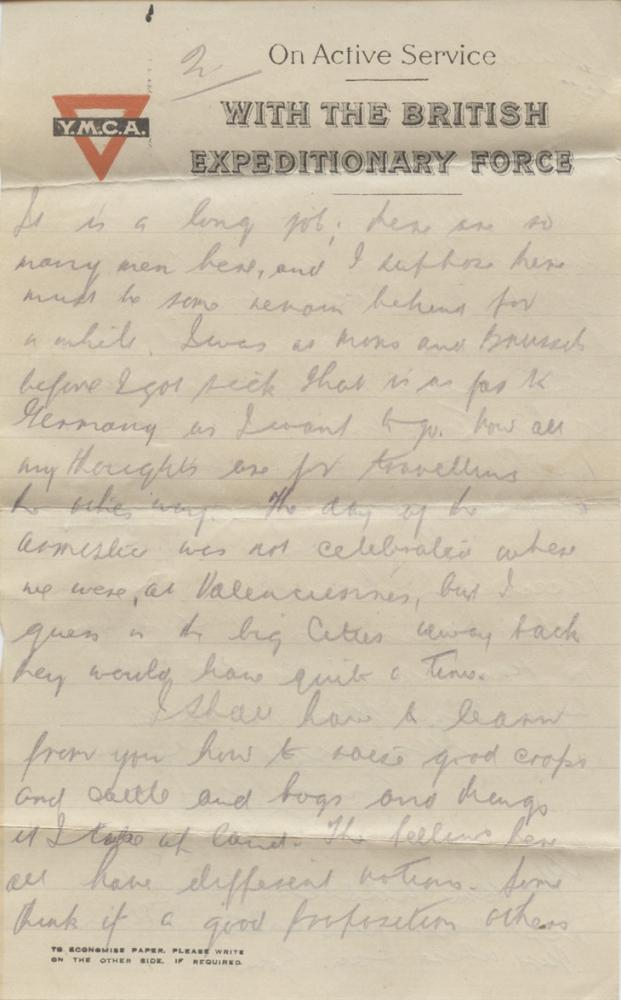 2
On Active Service
WITH THE BRITISH
EXPEDITIONARY FORCE
Y.M.C.A.
It is a long job; there are so
many men here, and I suppose there
must be some remain behind for
a while. I was at Mons and Brussels
before I got sick that is as far to
Germany as I want to go. Now all
my thoughts are for travelling
the other way. The day of the
armistice was not celebrated where
we were, at Valenciennes, but I
guess in the big Cities away back
they would have quite a time.
I shall have to learn
from you how to raise good crops
and cattle and hogs and things
if I take up land. The fellows here
all have different notions. Some
think it a good proposition others
TO ECONOMISE PAPER, PLEASE WRITE
ON THE OTHER SIDE, IF REQUIRED.